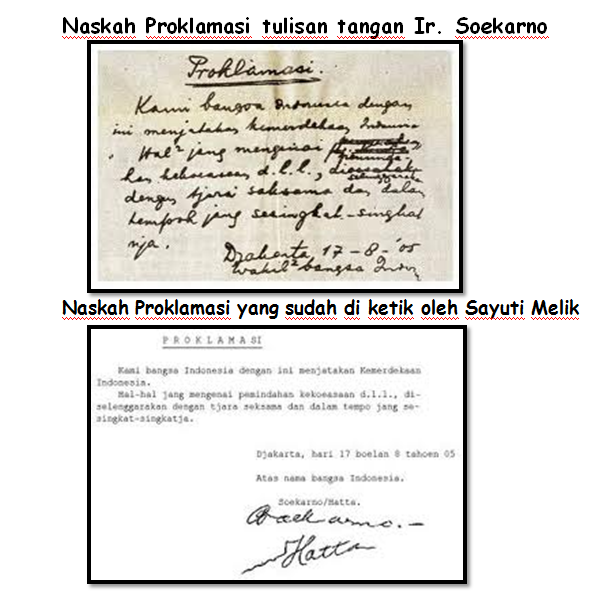 Naskah Proklamasi tulisan tangan Ir. Soekarno
Proklamasi.
Kami bangsa Indonesia dengan
ini menjatakan kemerdekaan Indonesia
Hal² jang mengenai
kekoeasaan d.l.l.,
dengan tjara saksama dan dalam
tempoh jang sesingkat-singkat
nja.
Djakarta 17-8-'05
Wakil² bangsa Indon
Naskah Proklamasi yang sudah di ketik oleh Sayuti Melik
P R O K L A M A S I
Kami bangsa Indonesia dengan ini menjatakan Kemerdekaan
Indonesia.
Hal-hal jang mengenai pemindahan kekoeasaan d.l.l., di-
selenggarakan dengan tjara seksama dan dalam tempo jang se-
singkat-singkatja.
Djakarta, hari 17 boelan 8 tahoen 05
Atas nama bangsa Indonesia.
Soekarno/Hatta.
Soekarno.-
Hatta